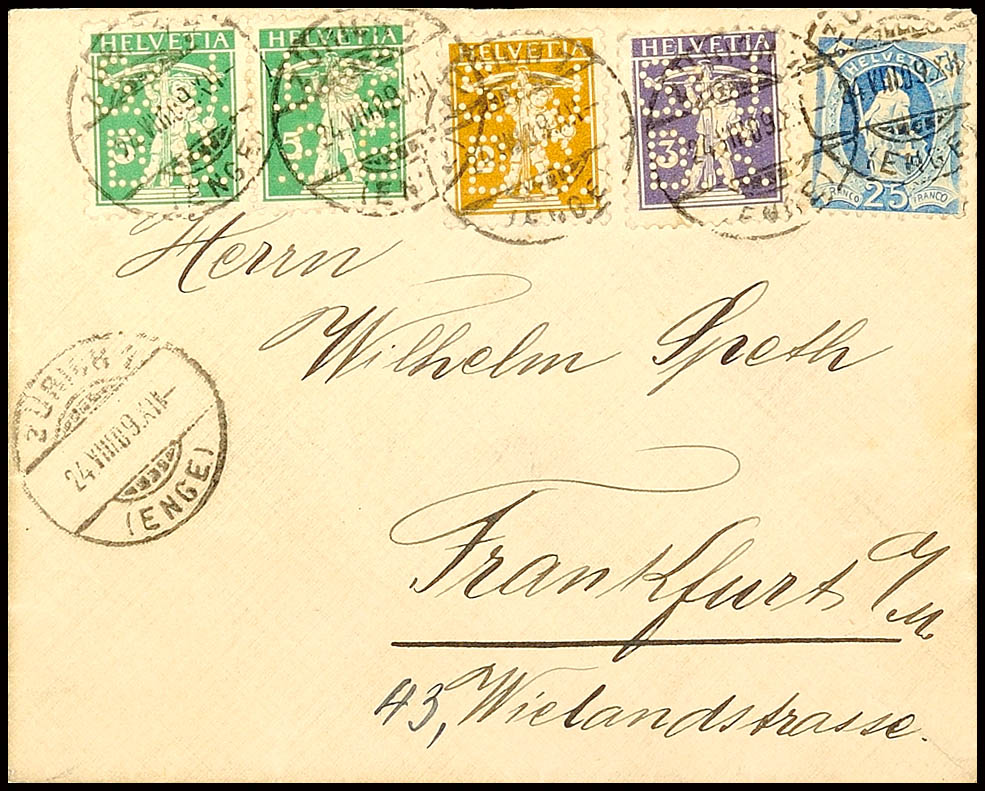 HELVETIA HELVETIA HELVETIA HELVETIA HELVETIA
5 5 3
FRANCO 25 FRANCO
Herrn
Wilhelm Speth
ZÜRICH 2
24.VIII.09.XII–
(ENGE)
Frankfurt a/M.
43, Wielandstrasse.